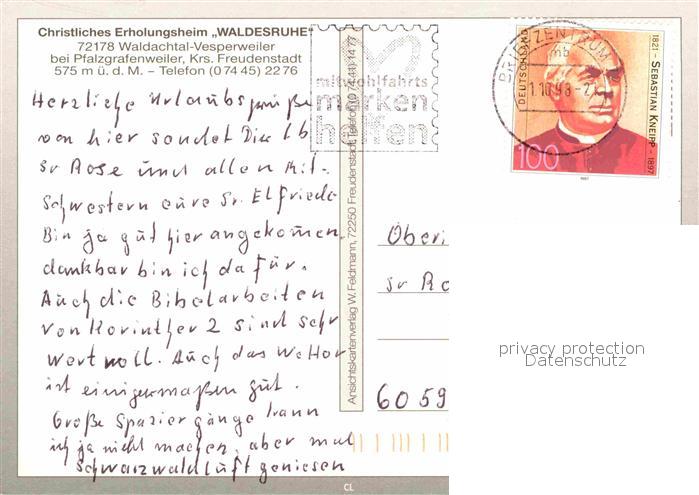 Christliches Erholungsheim „WALDESRUHE"
72178 Waldachtal-Vesperweiler
bei Pfalzgrafenweiler, Krs. Freudenstadt
575 m ü. d. M. – Telefon (0 74 45) 22 76
Herzliche Urlaubsgrüße
von hier sendet Dir lb
Sr Rose und allen Mit-
Schwestern eure Sr. Elfriede
Bin ja gut hier angekommen.
dankbar bin ich dafür.
Auch die Bibelarbeiten
von Korinther 2 sind sehr
wertvoll. Auch das Wetter
ist einigermaßen gut.
Große Spaziergänge kann
ich ja nicht machen, aber mal
Schwarzwaldluft geniesen
Ansichtskartenverlag W. Feldmann, 72250 Freudenstadt, Telefon (0 74 41) 14 77
mit wohlfahrts
marken
helfen
BRIEFZENTRUM
mb
1.10.98-21
DEUTSCHLAND
100
1821 - SEBASTIAN KNEIPP - 1897
1997
Oberi
Sr Ro
6059
privacy protection
Datenschutz
CL